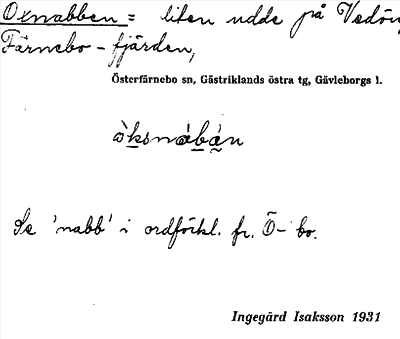 Oxnabben = liten udde på Vedön,
Färnebo-fjärden,
Österfärnebo sn, Gästriklands östra tg, Gävleborgs l.
òksnábán
Se 'nabb' i ordförkl. fr. Ö-bo.
Ingegärd Isaksson 1931